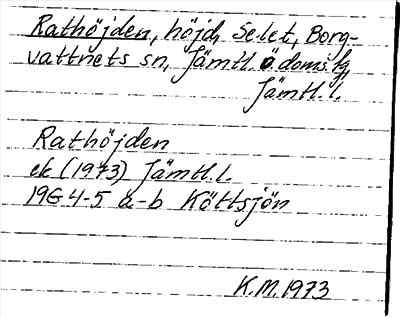 Rathöjden, höjd, Selet, Borg-
vattnets sn, Jämtl. ö. doms.lg,
Jämtl. l.
Rathöjden
ek (1973) Jämtl. l.
19G 4-5 a-b Köttsjön
K.M. 1973